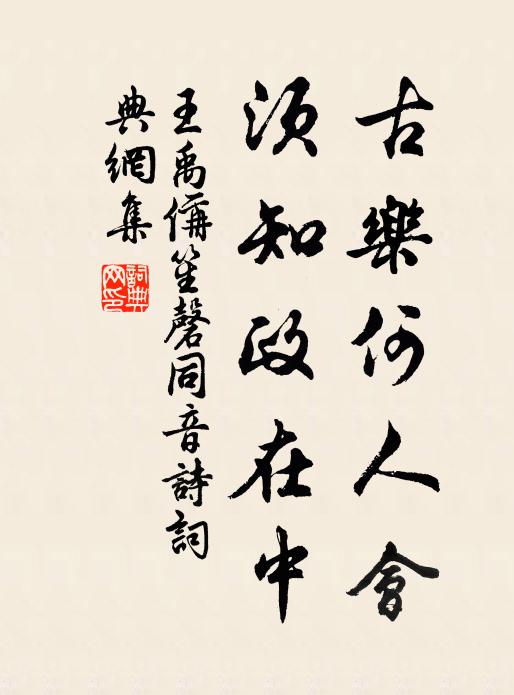 古樂何人會
須知政在中
王禹偁笙磬同音詩詞
典網集
詞典網印